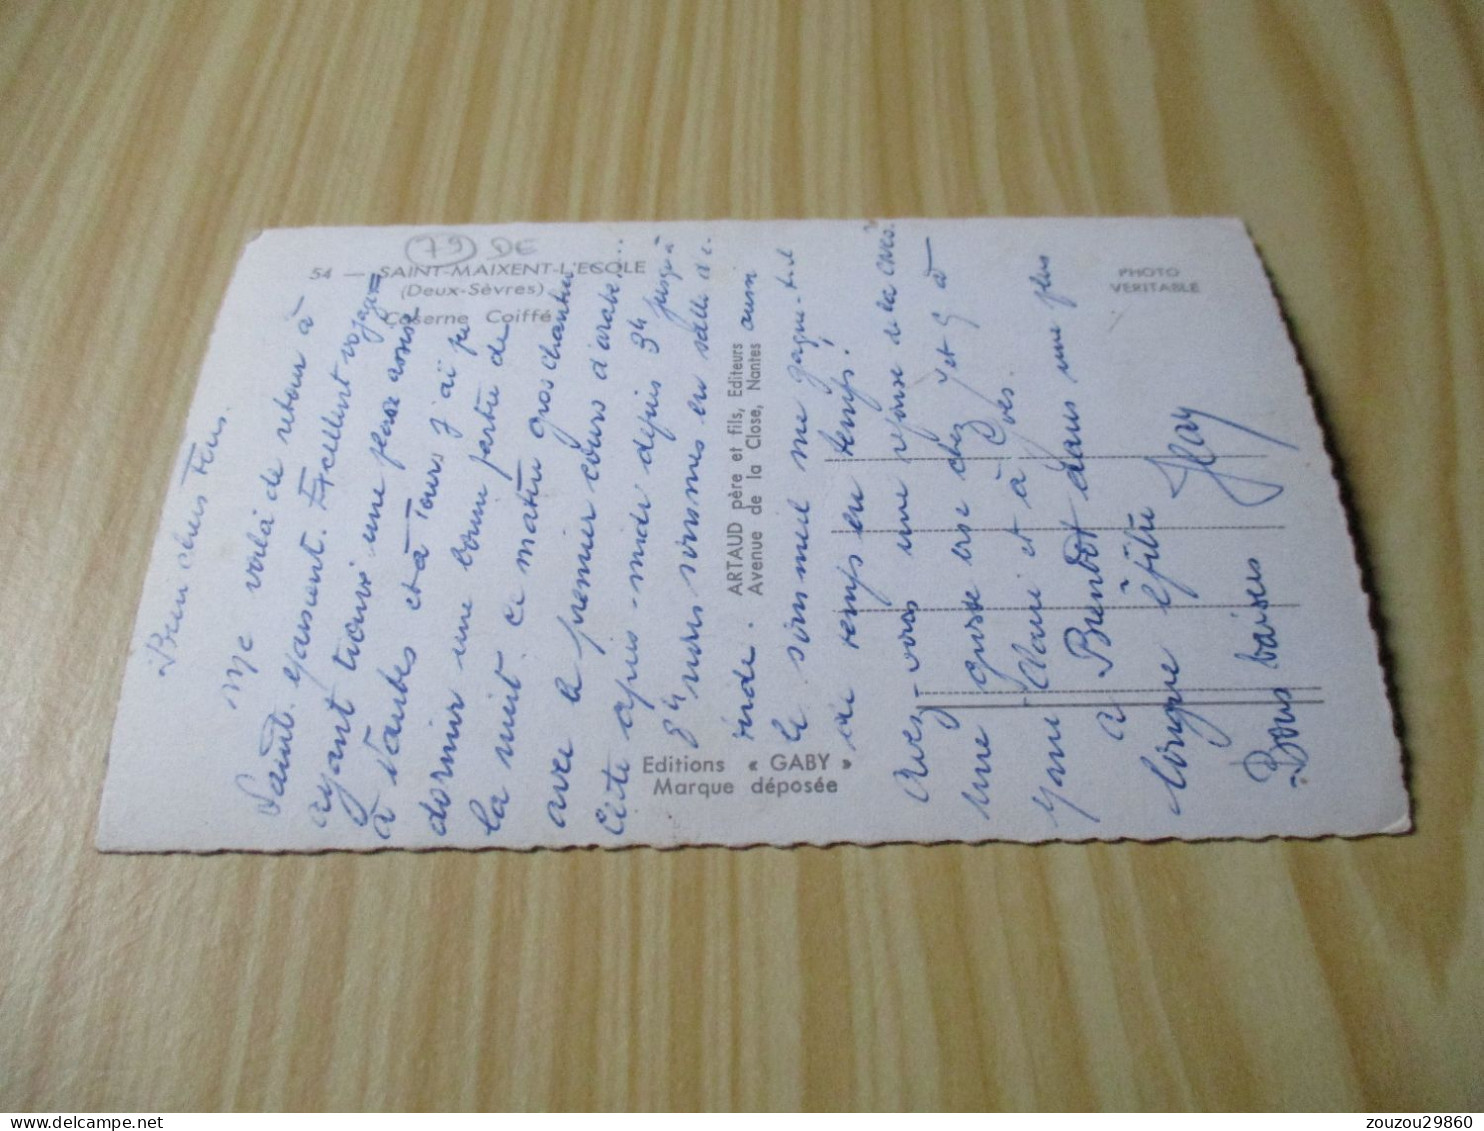 79 DE
54 — SAINT-MAIXENT-L'ECOLE
(Deux-Sèvres)
Caserne Coiffé
PHOTO
VERITABLE
ARTAUD père et fils, Editeurs
Avenue de la Close, Nantes
Editions « GABY »
Marque déposée
Bien chers tous.
Me voilà de retour à
Saint-Maixent. Excellent voyage
ayant trouvé une place assise
à et à Tours j'ai pu
dormir une bonne partie de
la nuit. Ce matin gros chantier
avec le premier cours d'arabe...
Cette après-midi depuis 3h jusqu'à
8h nous sommes en salle de
aussi
le sommeil me gagne-t-il
de temps en temps!
Avez-vous une réponse de la
une grosse bise chez Y et G à
Claire et à Yves.
à Bientôt dans une plus
longue épître
Bons baisers
zouzou29860